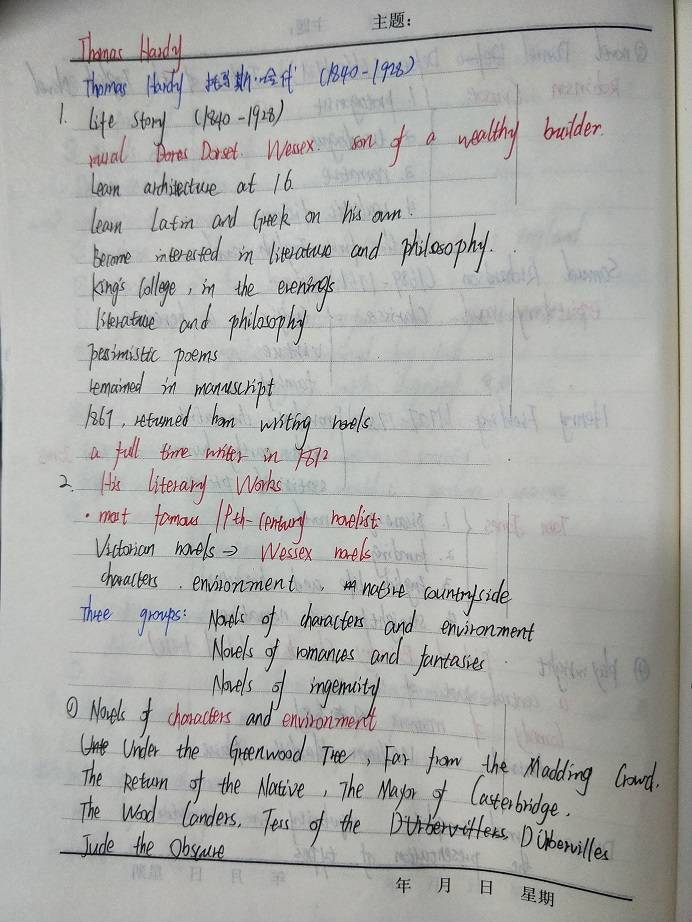 主题:
Thomas Hardy
Thomas Hardy 托马斯·哈代 (1840-1928)
1. Life story (1840-1928)
rural Dores Dorset Wessex. son of a wealthy builder.
Learn architecture at 16.
Learn Latin and Greek on his own.
Become interested in literature and philosophy.
King's College, in the evenings
literature and philosophy
pessimistic poems
remained in manuscript
1867, returned hom writing novels
a full time writer in 1872
2. His Literary Works
• most famous 19th-century novelist
Victorian novels → Wessex novels
characters. environment. native countryside
Three groups: Novels of characters and environment
Novels of romances and fantasies.
Novels of ingenuity
① Novels of characters and environment
Unte Under the Greenwood Tree, Far from the Madding Crowd.
The Return of the Native, The Mayor of Casterbridge.
The Wood Landers, Tess of the D'Urbervillers D'Urbervilles
Jude the Obscure
年 月 日 星期